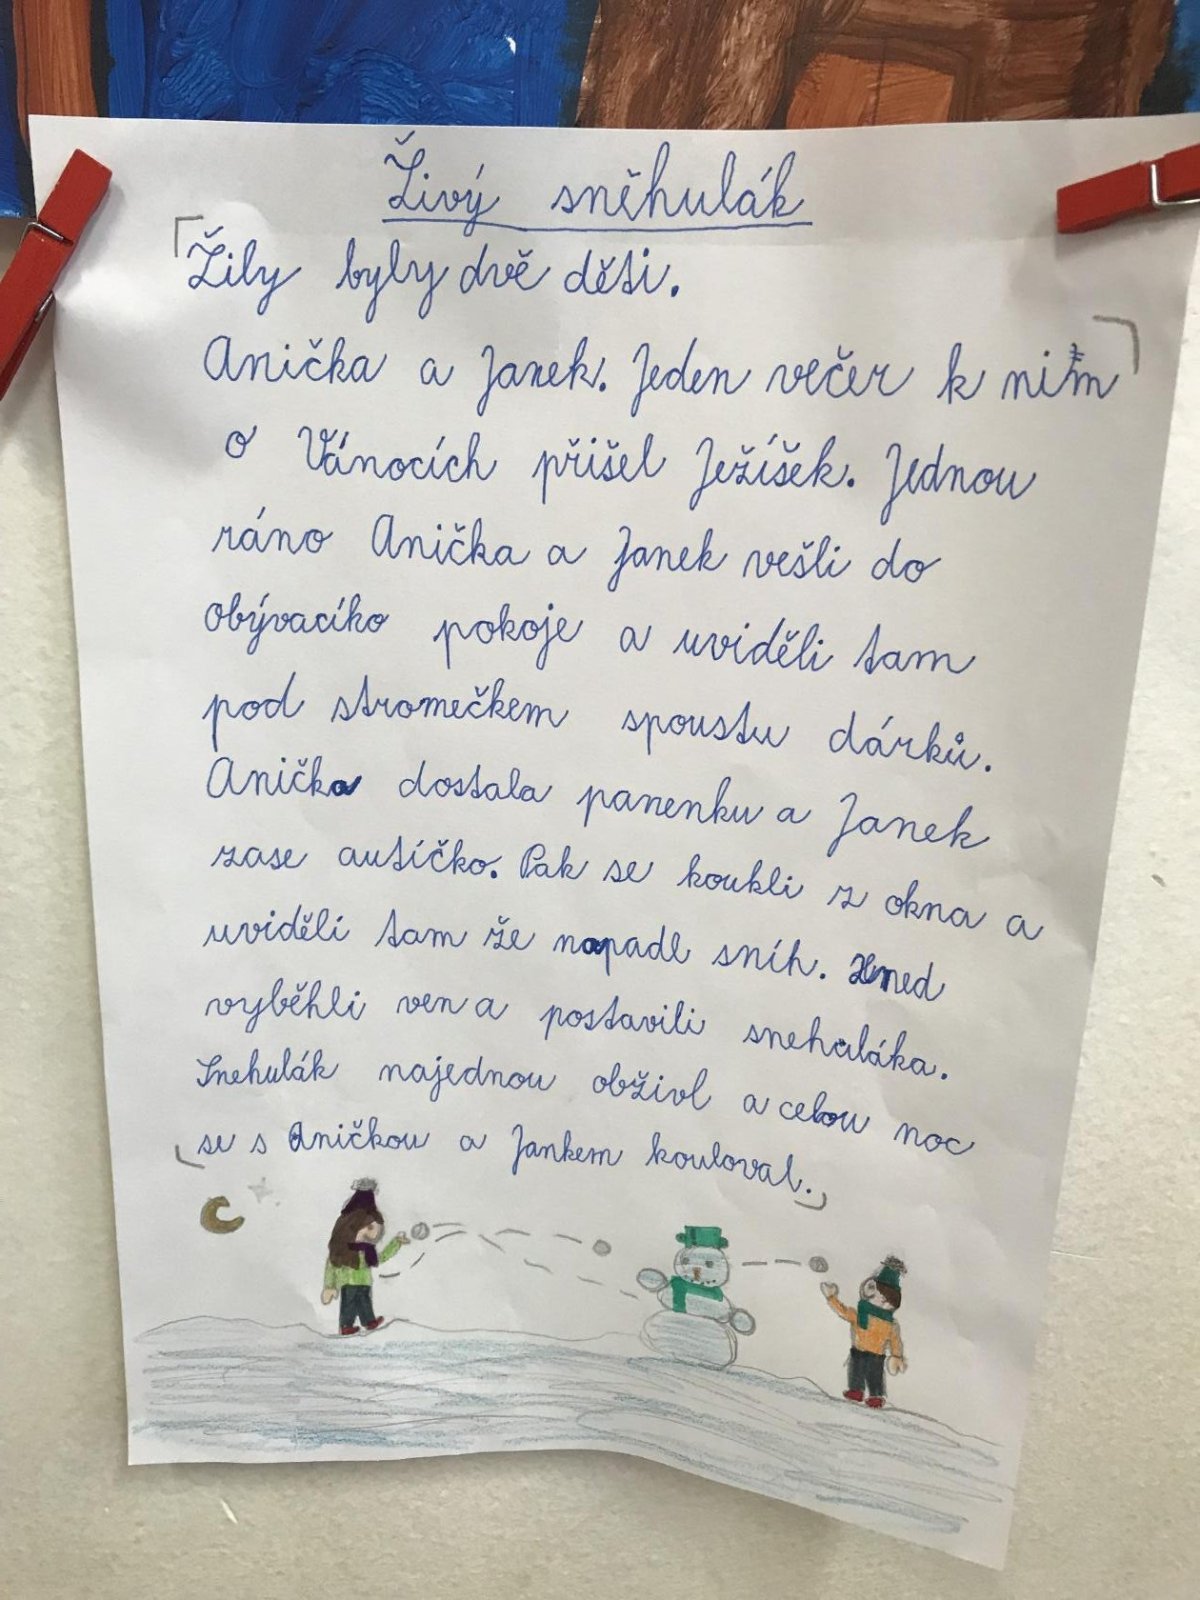 Živý sněhulák
Žily byly dvě děti.
Anička a Janek. Jeden večer k nim
o Vánocích přišel Ježíšek. Jednou
ráno Anička a Janek vešli do
obývacího pokoje a uviděli tam
pod stromečkem spoustu dárků.
Anička dostala panenku a Janek
zase autíčko. Pak se koukli z okna a
uviděli tam že napadl sníh. Hned
vyběhli ven a postavili snehuláka.
Snehulák najednou obživl a celou noc
se s Aničkou a Jankem kouloval.